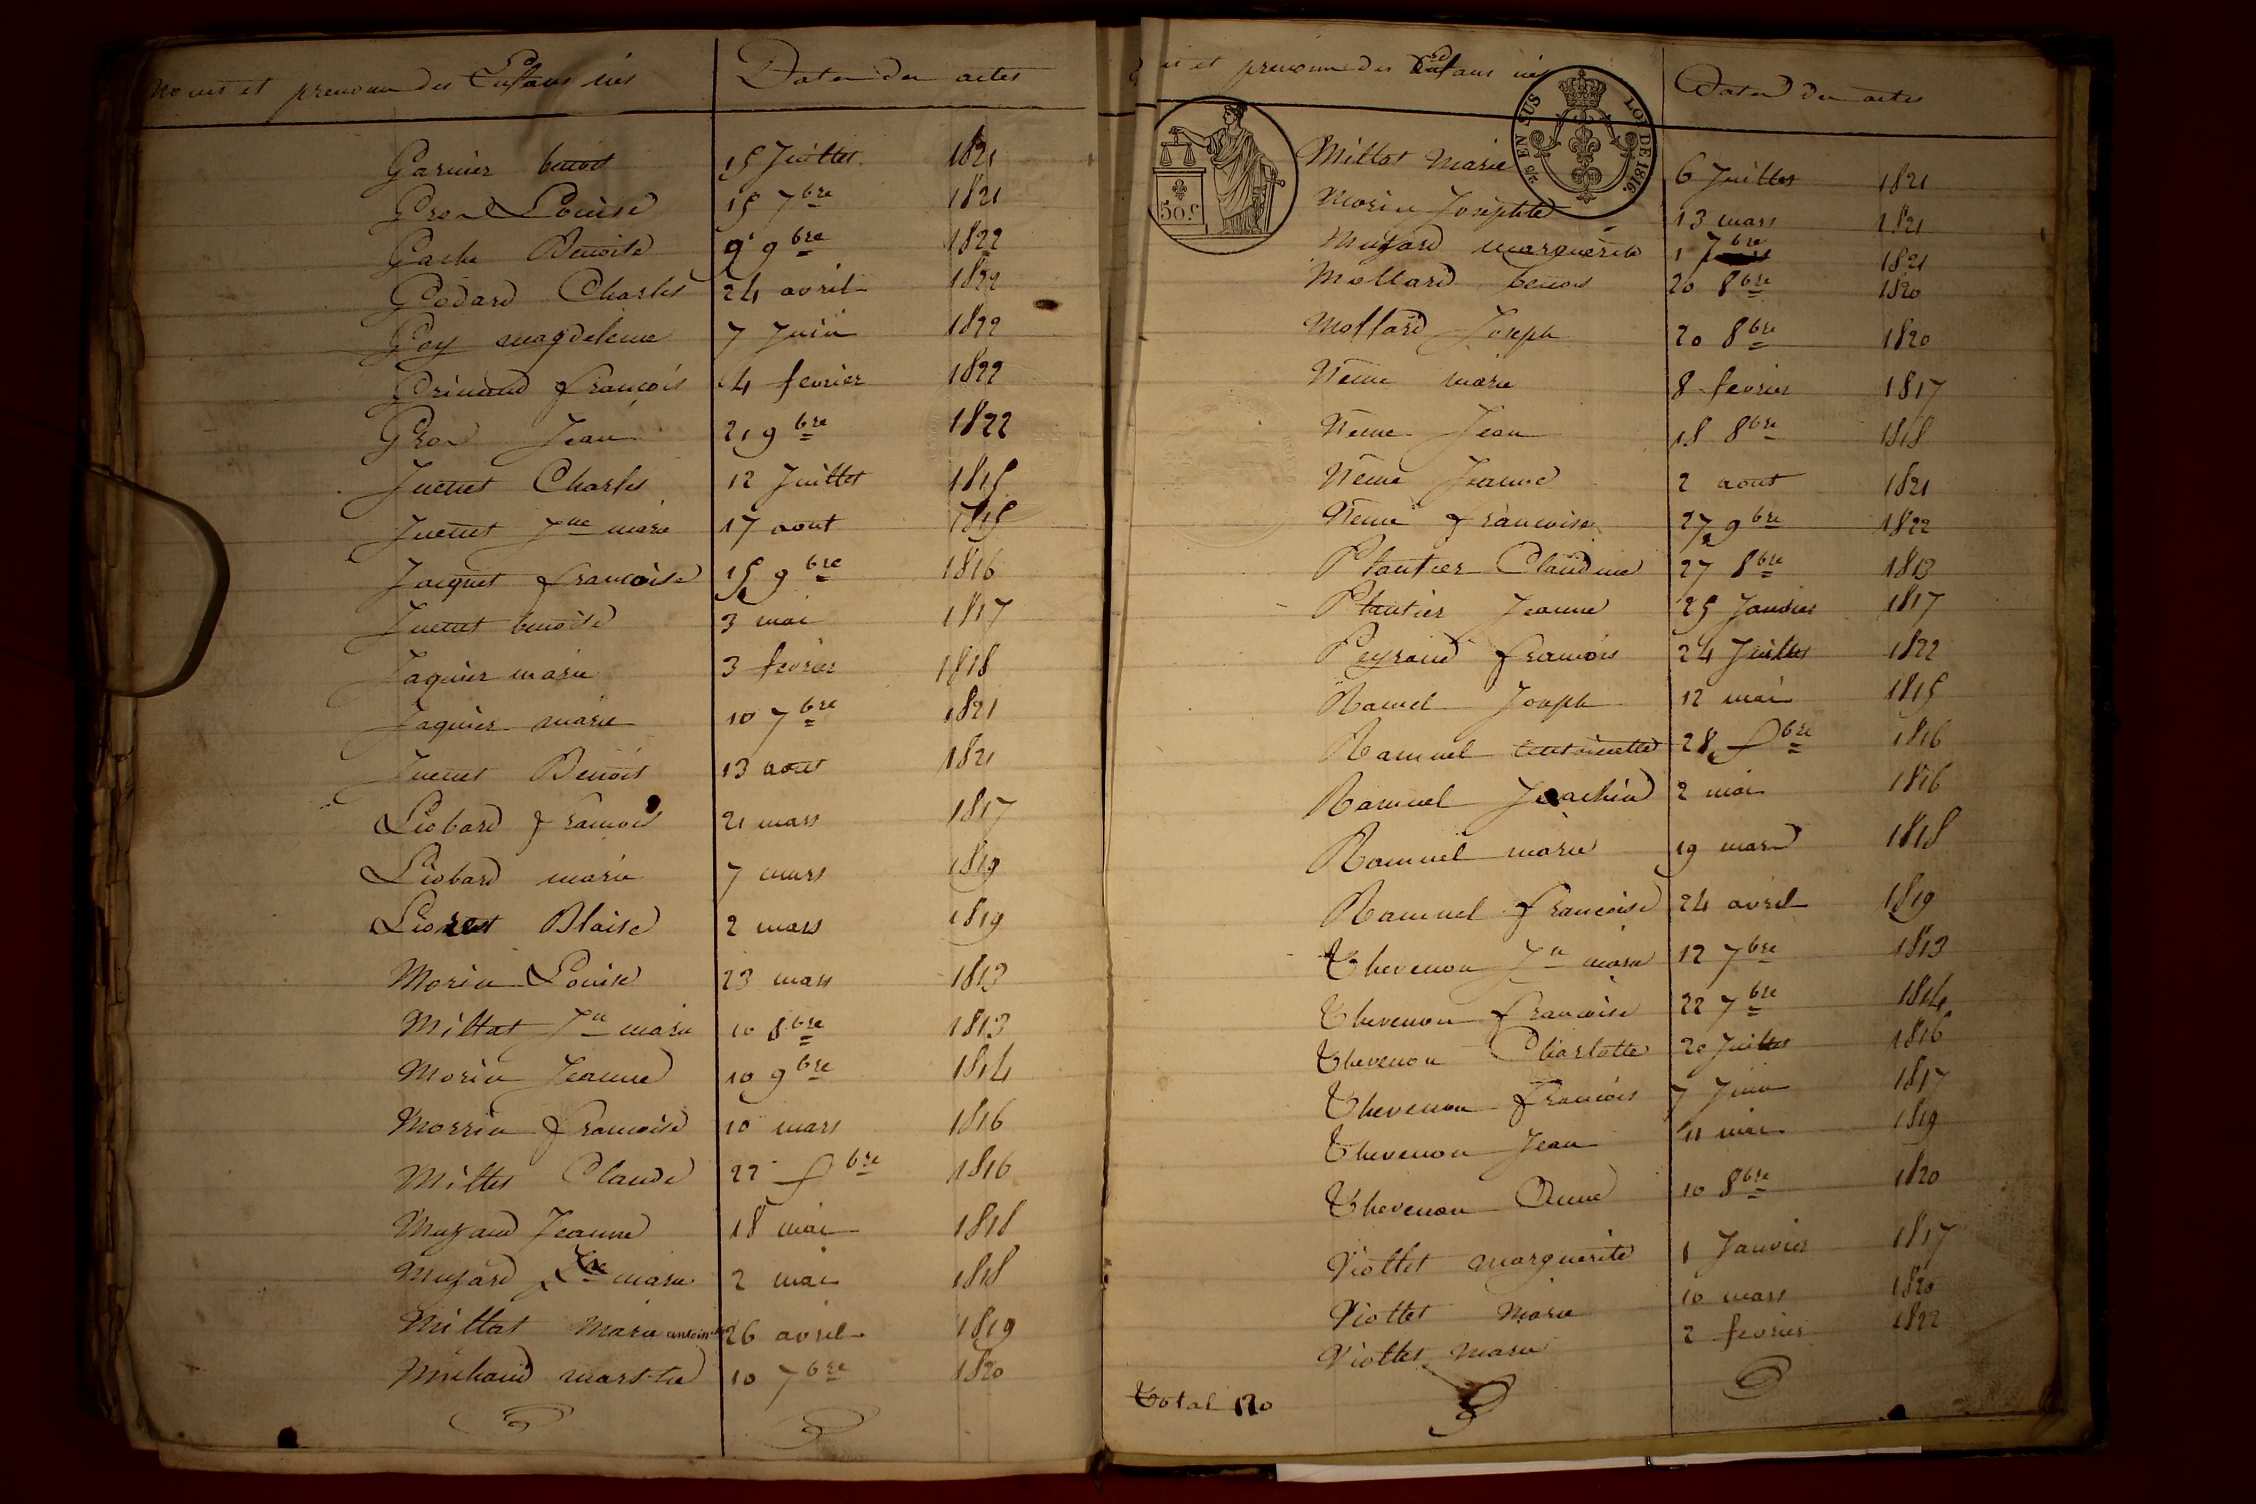 Noms et prenom des Enfans nés Dates des actes
Garnier benoit 15 Juillet 1821
Gros Louise 15 7bre 1821
Gache Benoite 9 9bre 1822
Godard Charles 24 avril 1822
Goy magdeleine 7 Juin 1822
Grinand francois 4 fevrier 1822
Gros Jean 21 9bre 1822
Juenet Charles 12 Juillet 1815
Juenet Jne marie 17 aout 1815
Jacquet francoise 15 9bre 1816
Juenet benoite 3 mai 1817
Jaquier marie 3 fevrier 1818
Jaquier marie 10 7bre 1821
Juenet Benoit 13 aout 1821
Liobard francois 21 mars 1817
Liobard marie 7 mars 1819
Blaise 2 mars 1819
Morin Louise 23 mars 1813
Millat Jn marie 10 8bre 1813
Morin Jeanne 10 9bre 1814
Morrin francoise 10 mars 1816
Millet Claude 22 bre 1816
Jeanne 18 mai 1818
marie 2 mai 1818
Millat Marie 26 avril 1819
10 7bre 1820
et prenom des Enfans nés Dates des actes
5/10 EN SUS LOI DE 1816.
50 C
Millat Marie 6 Juillet 1821
Morin Josephte 13 mars 1821
marguerite 1 7bre 1821
Mollard benoit 20 8bre 1820
Mollard Joseph 20 8bre 1820
Neme marie 8 fevrier 1817
Neme Jean 18 8bre 1818
Neme Jeanne 2 aout 1821
Neme francoise 27 9bre 1822
Plantier Claudine 27 8bre 1813
Plantier Jeanne 25 Janvier 1817
Peyraud francois 24 Juillet 1822
Ramel Joseph 12 mai 1815
Ramuel antoinette 28 bre 1816
Ramuel Joachin 2 mai 1816
Ramuel marie 19 mars 1818
Ramuel francoise 24 avril 1819
Thevenon Jn marie 12 7bre 1813
Thevenon francoise 22 7bre 1814
Thevenon Charlotte 20 Juillet 1816
Thevenon francois 7 Juin 1817
Thevenon Jean 11 mai 1819
Thevenon Anne 10 8bre 1820
Viollet marguerite 1 Janvier 1817
Viollet Marie 10 mars 1820
Viollet Marie 2 fevrier 1822
Total